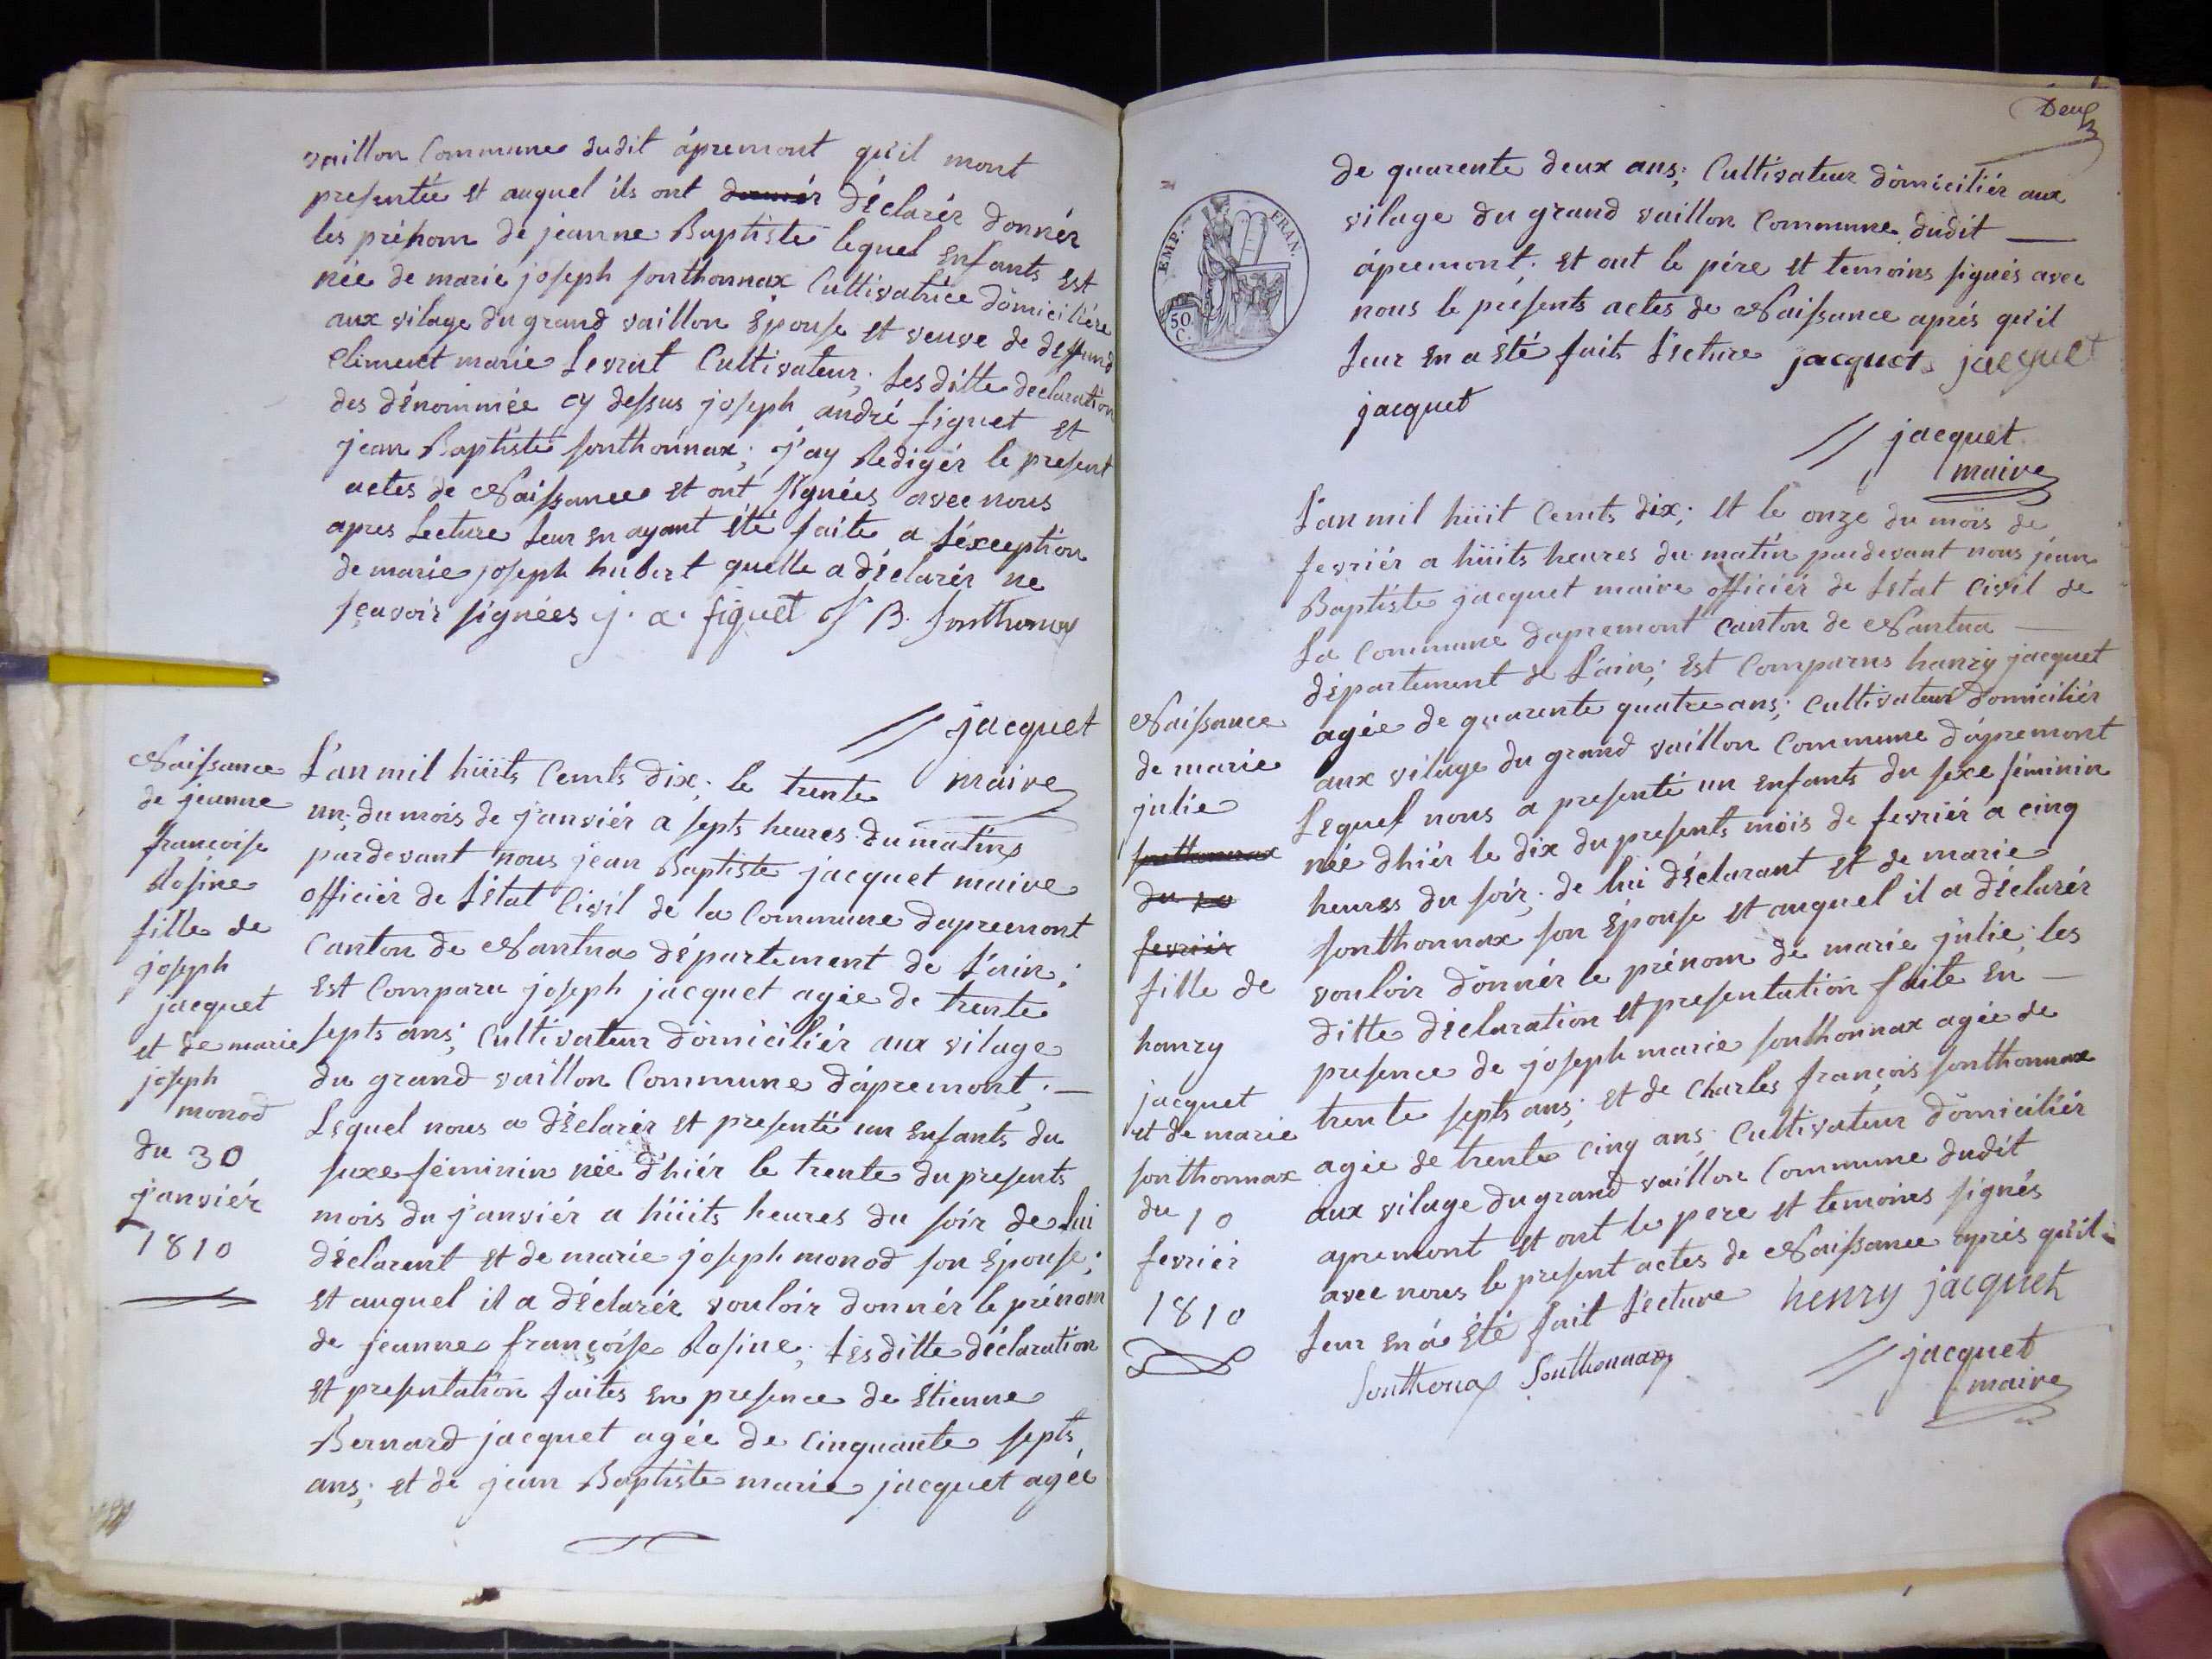 vaillon Commune dudit ápremont qu'il mont
presentée et auquel ils ont donnér déclarér donnér
les prénom de jeanne Baptiste lequel Enfants Est
née de marie joseph sonthonnax Cultivatrice dômiciliére
aux vilage du grand vaillon Epouse et veuve de deffund
Climent marie Levrat Cultivateur; Les ditte declaration
des dénommée cy dessus joseph andré figuet et
jean Baptiste sonthonnax; j'ay Redigér le present
actes de Naissance et ont signées avec nous
apres Lecture Leur en ayant été faite a L'éxception
de marie joseph hubert quelle a déclarér ne
sçavoir signées j. a. figuet J B. Sonthonax
// jacquet
maire
Naissance
de jeanne
françoise
Rosine
fille de
joseph
jacquet
et de marie
joseph
monod
du 30
janviér
1810
L'an mil hüits Cents dix; le trente
un; du mois de janviér a septs heures du matin
pardevant nous jean Baptiste jacquet maire
officiér de L'état Civil de la Commune dapremont
Canton de Nantua département de L'ain;
Est Comparu joseph jacquet agée de trente
septs ans; Cultivateur dômiciliér aux vilage
du grand vaillon Commune d'ápremont; —
Lequel nous a déclarér et presenté un Enfants du
sexe féminin née d'hiér le trente du presents
mois du janviér a hüits heures du soir de lui
déclarent et de marie joseph monod son Epouse;
et auquel il a déclarér vouloir donnér le prénom
de jeanne françoise Rosine; Les ditte déclaration
et presentation faites en presence de Etienne
Bernard jacquet agée de Cinquante septs
ans; et de jean Baptiste marie jacquet agée
Deux
EMP. FRAN.
50
C.
de quarente deux ans; Cultivateur dômiciliér aux
vilage du grand vaillon Commune dudit —
ápremont. et ont le pére et temoins signés avec
nous le présents actes de Naissance aprés qu'il
Leur en a été fait Lecture jacquet jacquet
jacquet
// jacquet
maire
L'an mil hüit Cents dix; et le onze du mois de
fevriér a hüits heures du matin pardevant nous jean
Baptiste jacquet maire officiér de L'état Civil de
La Commune dapremont Canton de Nantua —
département de L'ain; Est Comparus hanry jacquet
agée de quarente quatre ans; Cultivateur domiciliér
aux vilage du grand vaillon Commune d'ápremont
Lequel nous a presenté un Enfants du sexe féminin
née dhiér le dix du presents mois de fevriér a cinq
heures du soir; de lui déclarant et de marie
sonthonnax son Epouse et auquel il a déclarér
vouloir dônnér le prénom de marie julie; les
ditte déclaration et presentation faite en —
presence de joseph marie sonthonnax agée de
trente septs ans; et de Charles françois sonthonnax
agée de trente cinq ans; Cultivateur dômiciliér
aux vilage du grand vaillon Commune dudit
apremont et ont le pere et temoins signés
avec nous le present actes de Naissance aprés qu'il
Leur en á été fait Lecture henry jacquet
Sonthonax Sonthonnax
// jacquet
maire
Naissance
de marie
julie
sonthonnax
du 10
fevriér
fille de
hanry
jacquet
et de marie
sonthonnax
du 10
fevriér
1810